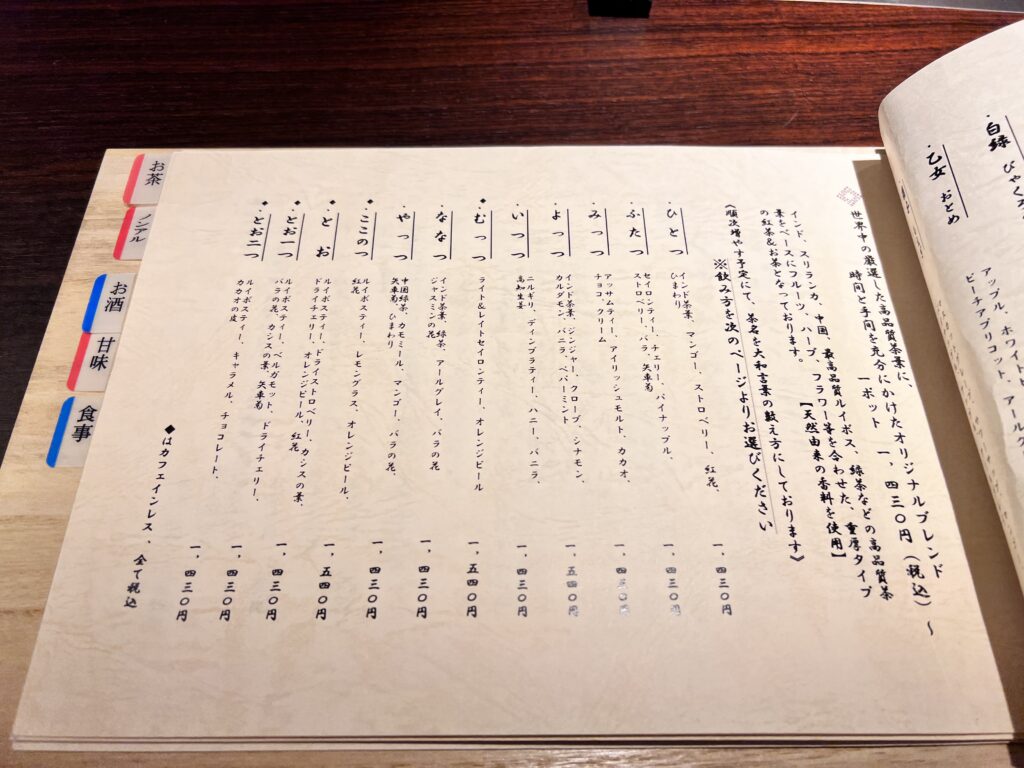 ・白緑
・乙女 おとめ
アップル、ホワイト
ピーチアプリコット、アールグ
世界中の厳選した高品質茶葉に、
時間と手間を充分にかけたオリジナルブレンド
一ポット 一，四三〇円（税込）～
インド、スリランカ、中国、最高品質ルイボス、緑茶などの高品質茶
葉をベースにフルーツ、ハーブ、フラワー等を合わせた、重厚タイプ
の紅茶&お茶となっております。 【天然由来の香料を使用】
〈順次増やす予定にて、茶名を大和言葉の数え方にしております〉
※飲み方を次のページよりお選びください
・ひとつ
インド茶葉、マンゴー、ストロベリー、紅花、
ひまわり
一，四三〇円
・ふたつ
セロンティー、チェリー、パイナップル、
ストロベリー、バラ、矢車菊
一，四三〇円
・みっつ
アッサムティー、アイリッシュモルト、カカオ、
チョコ、クリーム
一，四三〇円
・よっつ
インド茶葉、ジンジャー、クローブ、シナモン、
カルダモン、バニラ、ペパーミント
一，五四〇円
・いつつ
ニルギリ、ディンブラティー、ハニー、バニラ、
高知生姜
一，四三〇円
◆・むっつ
ライト&レイトセイロンティー、オレンジピール
一，五四〇円
・ななつ
インド茶葉、緑茶、アールグレイ、バラの花
ジャスミンの花
一，四三〇円
・やっつ
中国緑茶、カモミール、マンゴー、バラの花、
矢車菊ひまわり
一，四三〇円
◆・ここのつ
ルイボスティー、レモングラス、オレンジピール、
紅花
一，四三〇円
◆・とお
ルイボスティー、ドライストロベリー、カシスの葉、
ドライチェリー、オレンジピール、紅花
一，五四〇円
◆・とお一つ
ルイボスティー、ベルガモット、ドライチェリー、
バラの花、カシスの葉、矢車菊
一，四三〇円
◆・とお二つ
ルイボスティー、キャラメル、チョコレート、
カカオの皮
一，四三〇円
一，四三〇円
◆はカフェインレス、全て税込
お茶
ノンアル
お酒
甘味
食事